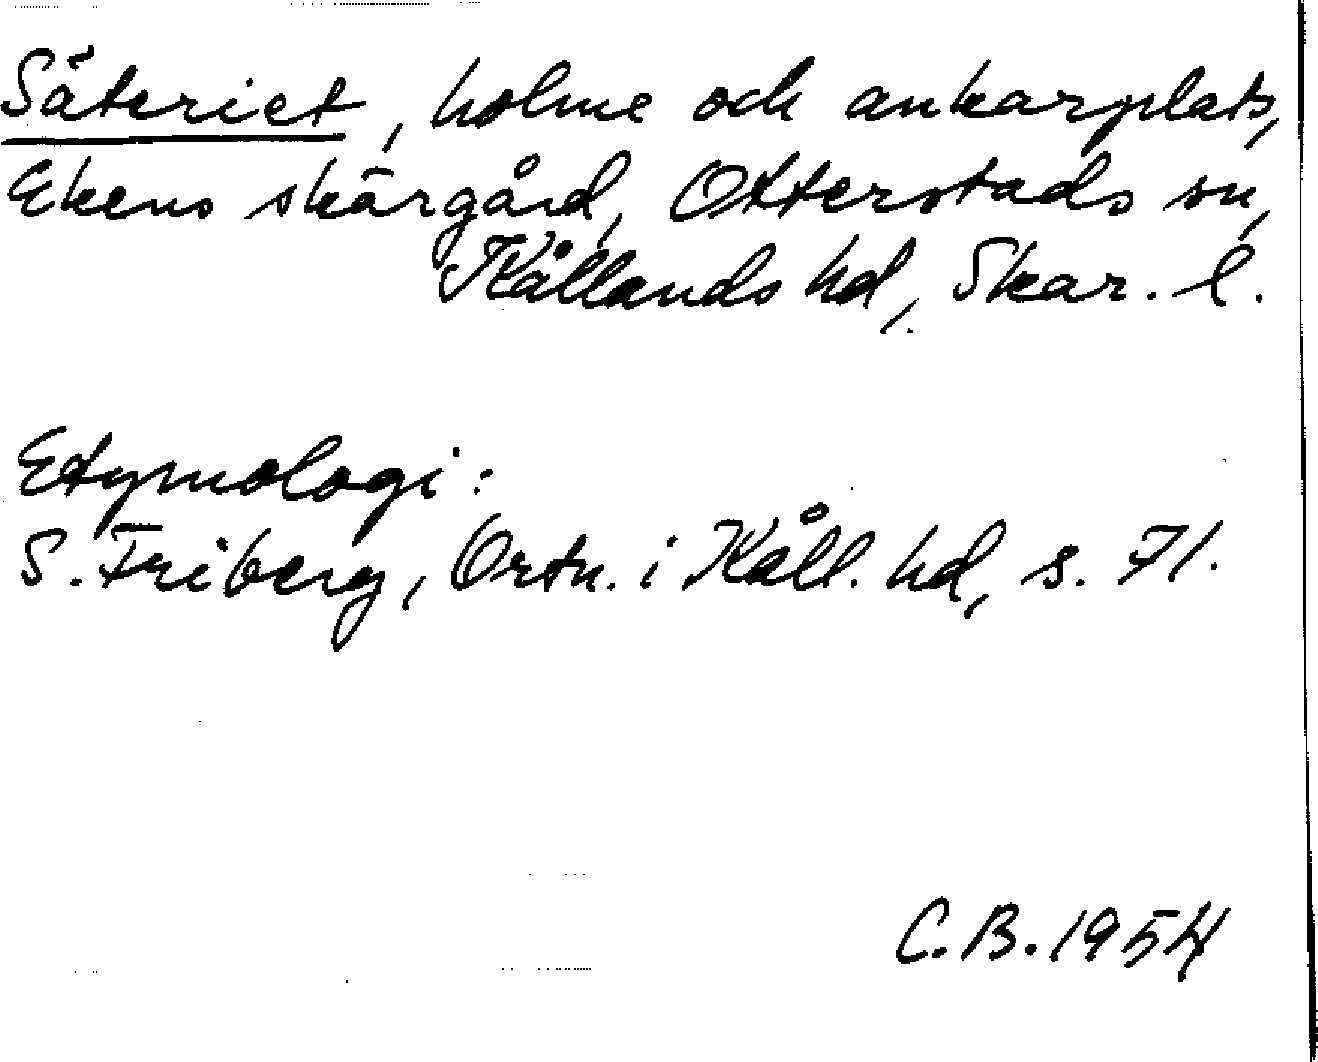 Säteriet, holme och ankarplats,
Ekens skärgård, Otterstads sn,
Kållands hd, Skar. l.
Etymologi:
S. Friberg, Ortn. i Kåll. hd, s. 71.
C.B. 1954